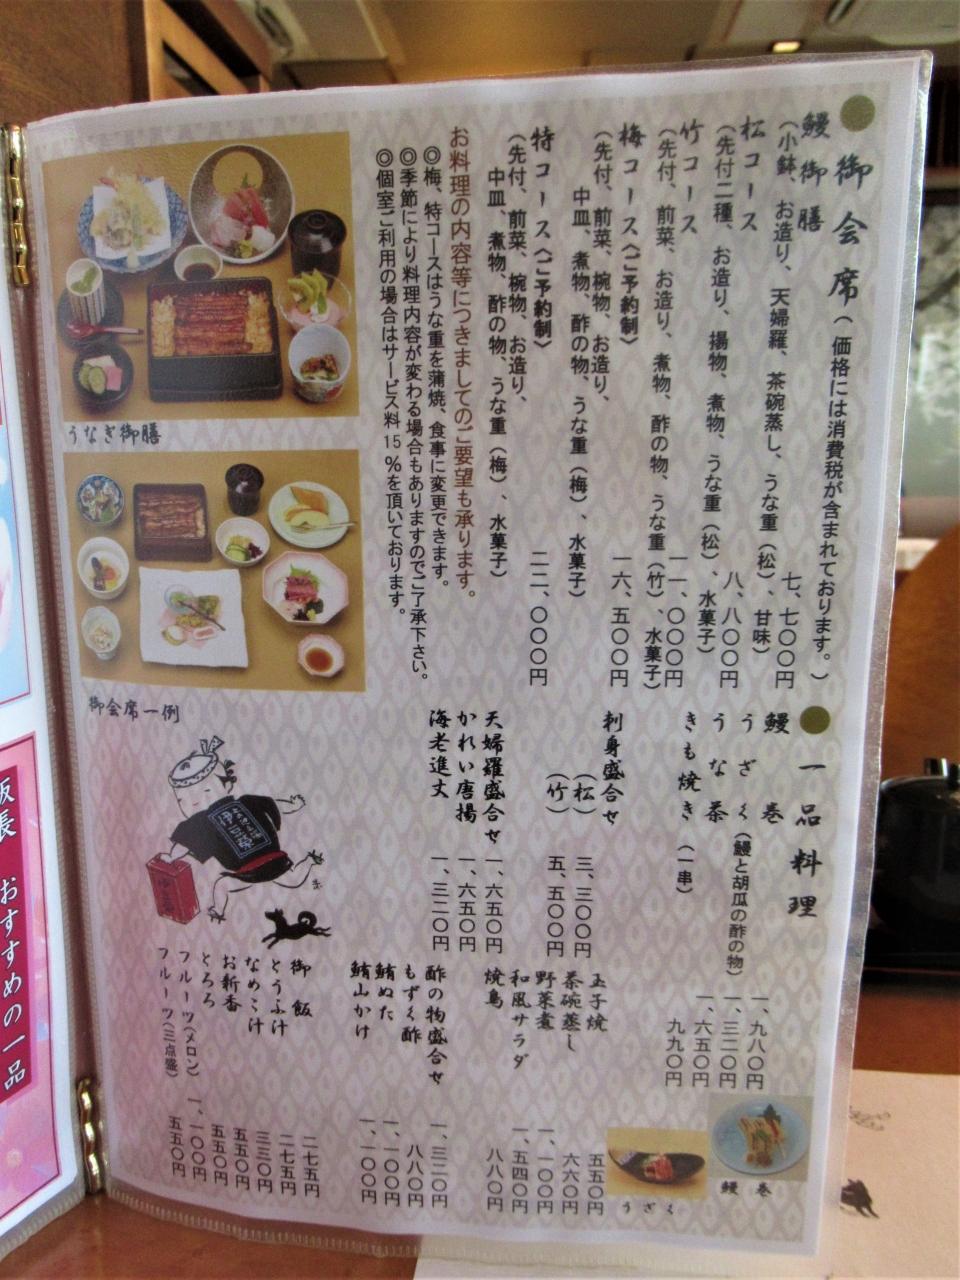 御会席（価格には消費税が含まれております。）
鰻御膳 七、七〇〇円
（小鉢、お造り、天婦羅、茶碗蒸し、うな重（松）、甘味）
松コース 八、八〇〇円
（先付二種、お造り、揚物、煮物、うな重（松）、水菓子）
竹コース 一一、〇〇〇円
（先付、前菜、お造り、煮物、酢の物、うな重（竹）、水菓子）
梅コース（ご予約制） 一六、五〇〇円
（先付、前菜、椀物、お造り、
中皿、煮物、酢の物、うな重（梅）、水菓子）
特コース（ご予約制） 二二、〇〇〇円
（先付、前菜、椀物、お造り、
中皿、煮物、酢の物、うな重（梅）、水菓子）
お料理の内容等につきましてのご要望も承ります。
◎梅、特コースはうな重を蒲焼、食事に変更できます。
◎季節により料理内容が変わる場合もありますのでご了承下さい。
◎個室ご利用の場合はサービス料15％を頂いております。
うなぎ御膳
御会席一例
一品料理
鰻巻 一、九八〇円
うざく（鰻と胡瓜の酢の物） 一、三二〇円
うな茶 一、六五〇円
きも焼き（一串） 九九〇円
刺身盛合せ
（松） 三、三〇〇円
（竹） 五、五〇〇円
天婦羅盛合せ 一、六五〇円
かれい唐揚 一、六五〇円
海老進丈 一、三二〇円
玉子焼 五五〇円
茶碗蒸し 六六〇円
野菜煮 一、一〇〇円
和風サラダ 一、五四〇円
焼鳥 八八〇円
酢の物盛合せ 一、三二〇円
もずく酢 八八〇円
鮪ぬた 一、一〇〇円
鮪山かけ 一、一〇〇円
御飯 二七五円
とうふ汁 二七五円
なめこ汁 三三〇円
お新香 五五〇円
とろろ 五五〇円
フルーツ（メロン） 一、一〇〇円
フルーツ（三点盛） 五五〇円
鰻巻
うざく
伊豆榮
板長 おすすめの一品